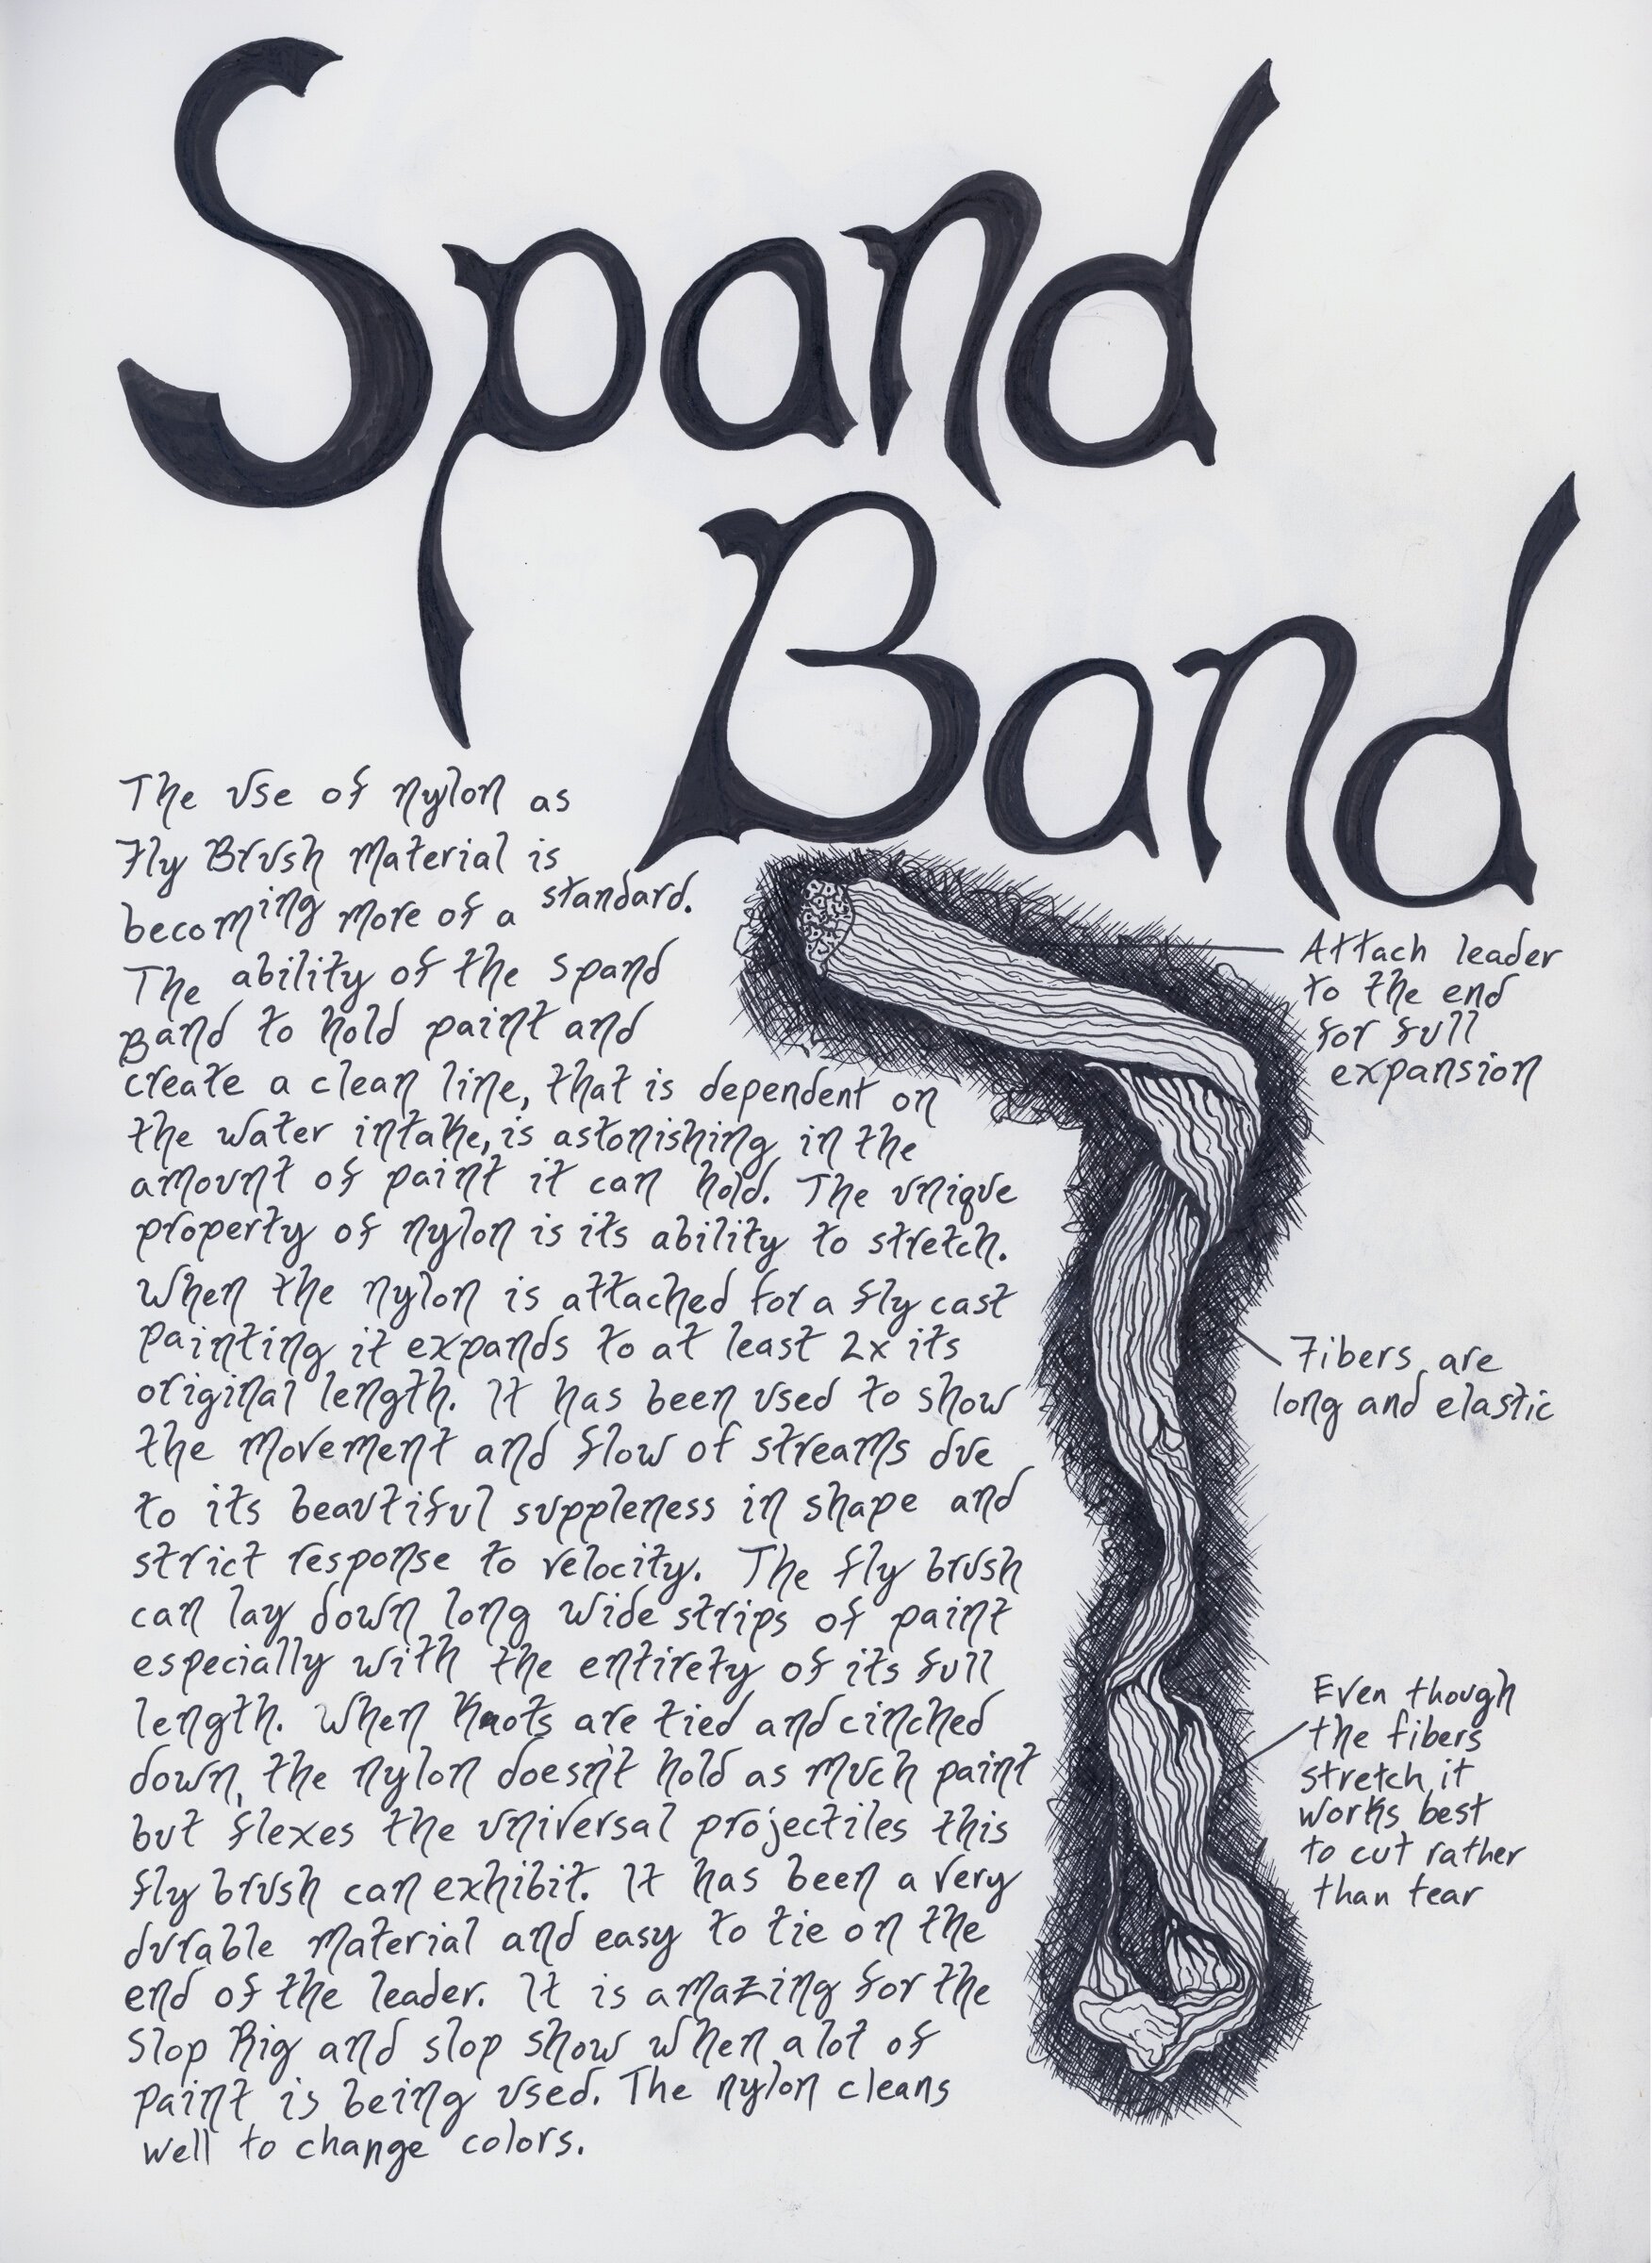 Spand
Band
The use of nylon as
Fly Brush Material is
becoming more of a standard.
The ability of the Spand
Band to hold paint and
create a clean line, that is dependent on
the water intake, is astonishing in the
amount of paint it can hold. The unique
property of nylon is its ability to stretch.
When the nylon is attached for a fly cast
painting it expands to at least 2x its
original length. It has been used to show
the movement and flow of streams due
to its beautiful suppleness in shape and
strict response to velocity. The fly brush
can lay down long wide strips of paint
especially with the entirety of its full
length. When knots are tied and cinched
down, the nylon doesn't hold as much paint
but flexes the universal projectiles this
fly brush can exhibit. It has been a very
durable material and easy to tie on the
end of the leader. It is amazing for the
Slop Rig and slop show when a lot of
paint is being used. The nylon cleans
well to change colors.
Attach leader
to the end
for full
expansion
Fibers are
long and elastic
Even though
the fibers
stretch, it
works best
to cut rather
than tear